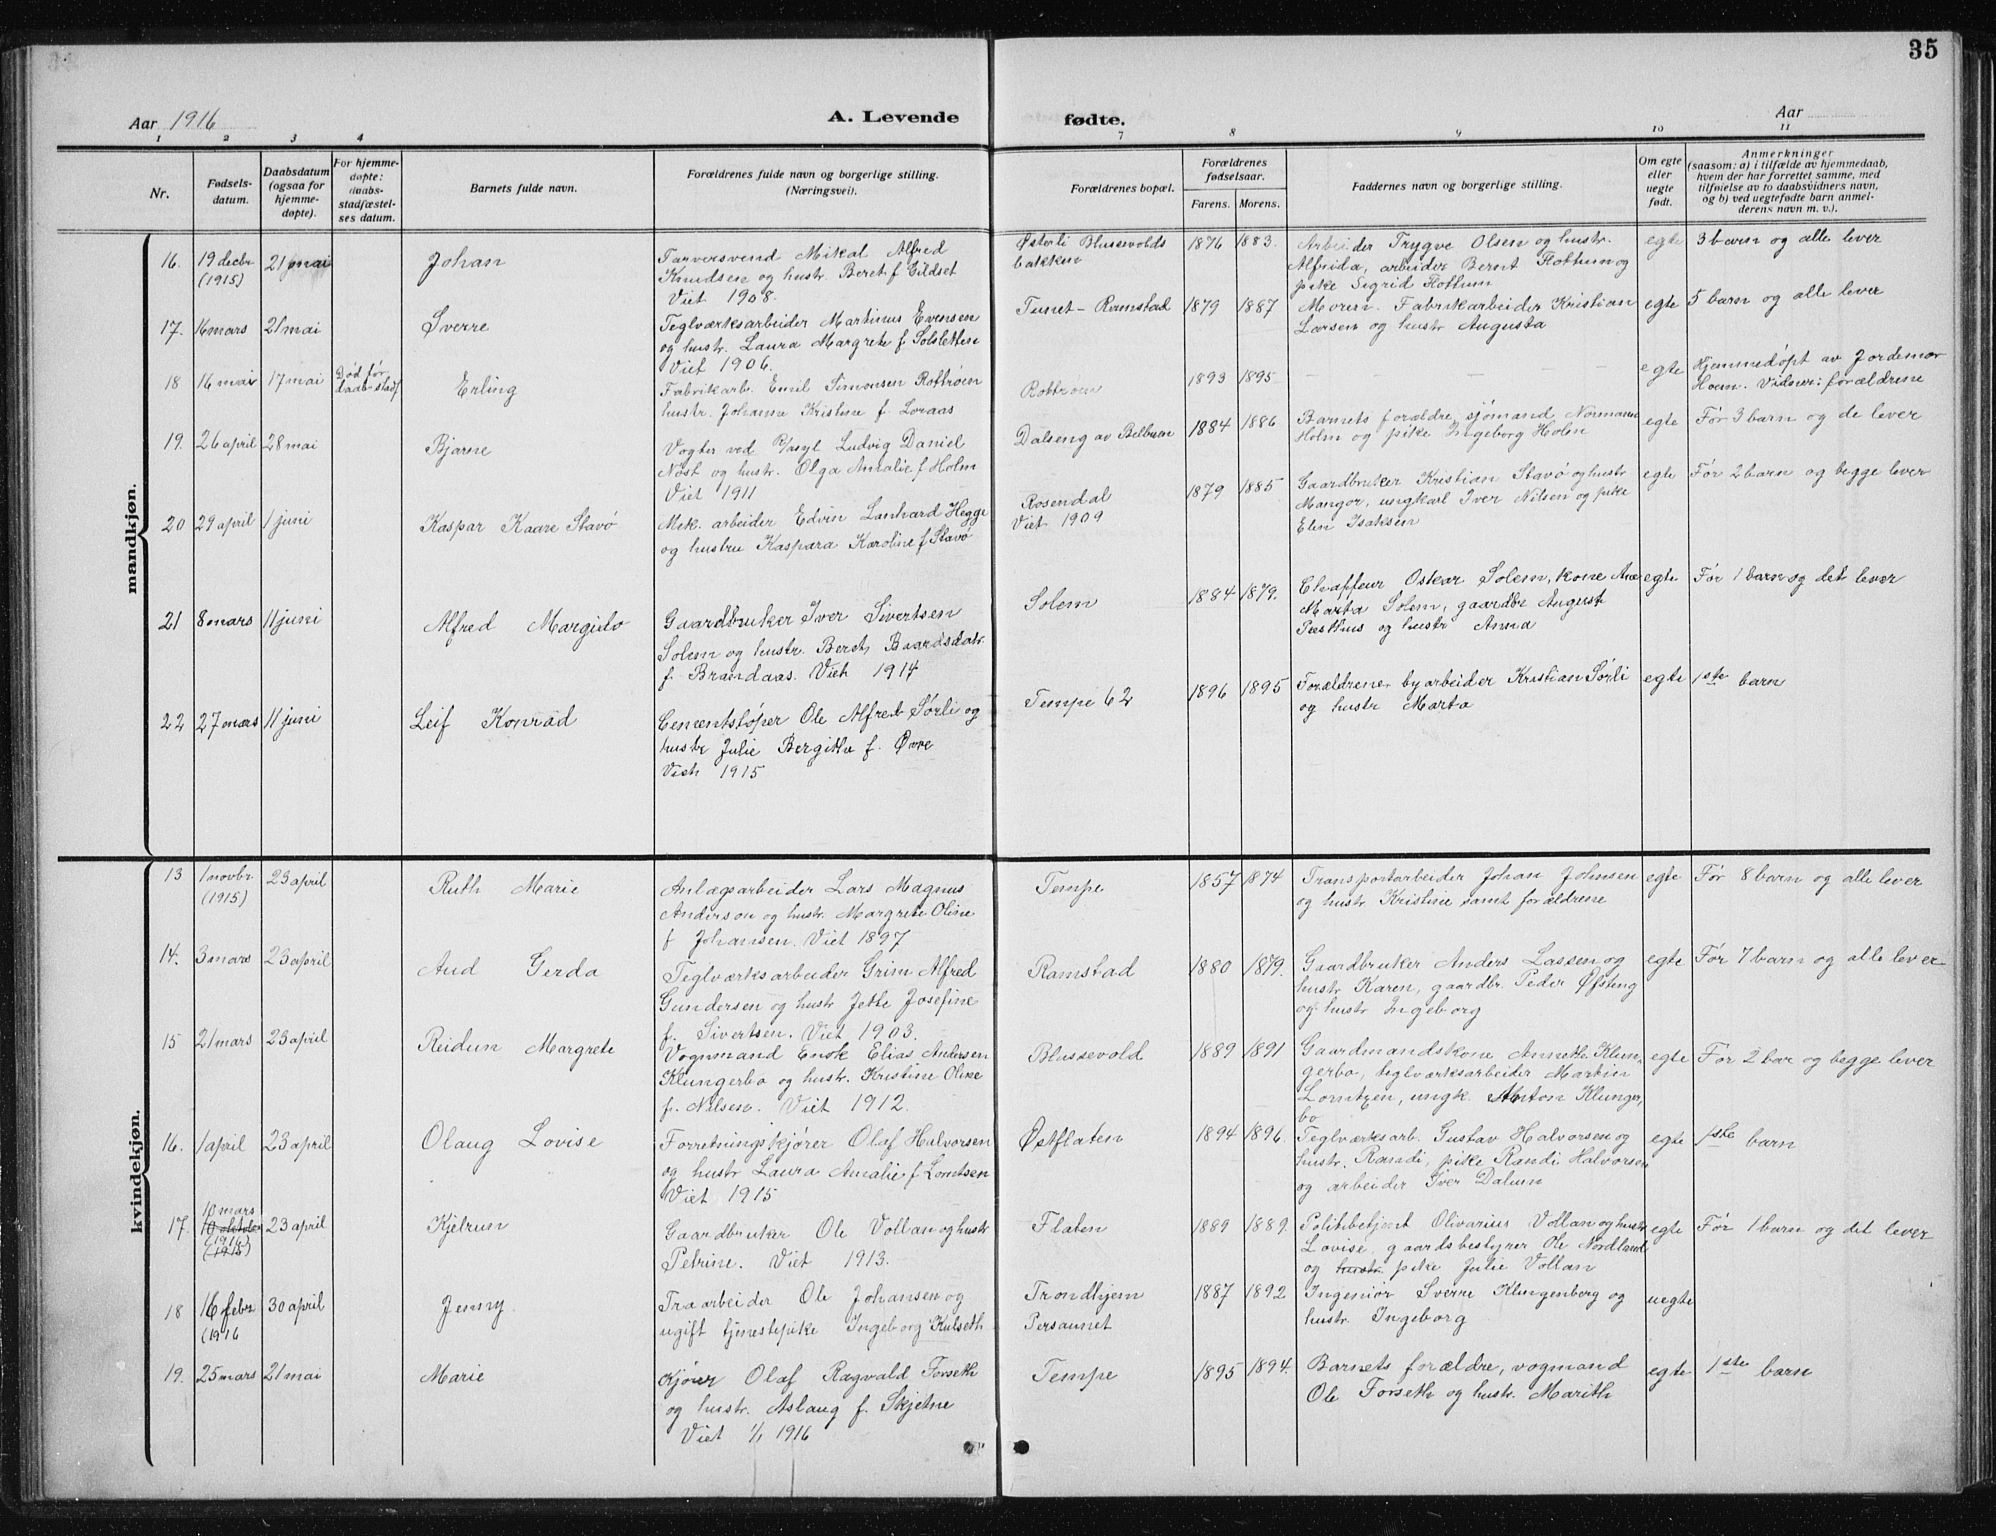 35
Aar 1916
A. Levende
fødte.
Aar
1 2 3 4 7 8 9 10 11
Nr.
Fødsels-
datum.
Daabsdatum
(ogsaa for
hjemme-
døpte).
For hjemme-
døpte:
daabs-
stadfæstel-
ses datum.
Barnets fulde navn.
Forældrenes fulde navn og borgerlige stilling.
(Næringsvei).
Forældrenes bopæl.
Forældrenes
fødselsaar.
Farens. Morens.
Faddernes navn og borgerlige stilling.
Om egte
eller
uegte
født.
Anmerkninger
(saasom: a) i tilfælde av hjemmedaab,
hvem der har forrettet samme, med
tilføielse av to daabsvidners navn,
og b) ved uegtefødte barn anmel-
derens navn m. v.).
mandkjøn.
16. 19 decbr (1915) 21 mai
Johan
Farversvend Mikal Alfred
Knudsen og hustr. Beret f. Gildset
Viet 1908.
Østerli Blussevolds
bakken
1876 1883.
Arbeider Trygve Olsen og hustr.
Alfrida, arbeider Bernt Flottum og
pike Sigrid Flottum
egte
3 barn og alle lever
17. 16 mars 21 mai
Sverre
Teglværksarbeider Martinus Evensen
og hustr. Laura Margrete f. Solsletten
Viet 1906.
Tunet - Ramstad
1879 1887
Moren. Fabrikarbeider Kristian
Larsen og hustr Augusta
egte
5 barn og alle lever
18 16 mai 17 mai
Død før
daab-stadf
Erling
Fabrikarb. Emil Simonsen Rottrøen
hustr. Johanne Kristine f. Loraas
Rottroen
1893 1895
egte
Hjemmedøpt av Jordemor
Hoem. Vidner: forældrene
19. 26 april 28 mai
Bjarne
Vogter ved R/asyl Ludvig Daniel
Nøst og hustr. Olga Amalie f Holm
Viet 1911
Dalseng av Belbuen
1884 1886
Barnets forældre, sjømand Normann
Holm og pike Ingeborg Holm
egte
Før 3 barn og de lever
20 29 april 1 juni
Kaspar Kaare Stavø
Mek. arbeider Edvin Lenhard Hegge
og hustru Kaspara Karoline f Stavø
Rosendal
Viet 1909
1879 1885
Gaardbruker Kristian Stavø og hustr
Mangor, ungkarl Iver Nilsen og pike
Elen Isaksen
egte
Før 2 barn og begge lever
21 8 mars 11 juni
Alfred Margido
Gaardbruker Iver Sivertsen
Solem og hustr. Beret Baardsdatr.
f. Brandaas. Viet 1914
Solem
1884 1879.
Chauffeur Oskar Solem, kone Ane
Marta Solem, gaardbr August
Presthus og hustr Anna
egte
Før 1 barn og det lever
22 27 mars 11 juni
Leif Konrad
Cementstøper Ole Alfred Sørli og
hustr Julie Bergitha f. Øvre
Viet 1915
Tempe 62
1896 1895
Forældrene, byarbeider Kristian Sørli
og hustr Marta
egte
1ste barn
kvindekjøn.
13 1 novbr (1915) 23 april
Ruth Marie
Anlægsarbeider Lars Magnus
Anderson og hustr. Margrete Oline
f Johansen. Viet 1897
Tempe
1857 1874
Transportarbeider Johan Johnsen
og hustr Kristine samt forældrene
egte
Før 8 barn og alle lever
14. 3 mars 23 april
Aud Gerda
Teglværksarbeider Grim Alfred
Gundersen og hustr Jette Josefine
f. Sivertsen. Viet 1903.
Ramstad
1880 1879.
Gaardbruker Anders Lassen og
hustr Karen, gaardbr. Peder Øfsting
og hustr Ingeborg
egte
Før 7 barn og alle lever
15 21 mars 23 april
Reidun Margrete
Vognmand Ensk Elias Andersen
Klungerbo og hustr. Kristine Oline
f. Nilsen. Viet 1912.
Blussevold
1889 1891
Gaardmandskone Anneth. Klun-
gerbo, teglværksarbeider Martin
Lorntzen, ungk. Anton Klunger,
bo
egte
Før 2 bar og begge lever
16. 1 april 23 april
Olaug Lovise
Forretningskjører Olaf Halvorsen
og hustr Laura Amalie f Lorntsen
Viet 1915
Østflaten
1894 1896.
Teglværksarb. Gustav Halvorsen og
hustr. Randi, pike Randi Halvorsen
og arbeider Iver Dalum
egte
1ste barn
17. 10 mars
10 oktober
(1916)
(1915)
23 april
Kjelrun
Gaardbruker Ole Vollan og hustr
Petrine. Viet 1913.
Flaten
1889 1889.
Politibetjent Olivarius Vollan og hustr
Lovise, gaardsbestyrer Ole Nordland
og hustr. pike Julie Vollan
egte
Før 1 barn og det lever
18 16 febr (1916 30 april
Jenny
Traarbeider Ole Johansen og
ugift tjenestepike Ingeborg Kulseth
Trondhjem
Persaunet
1887 1892
Ingeniør Sverre Klingenberg og
hustr. Ingeborg
uegte
19. 25 mars 21 mai
Marie
Kjører Olaf Ragvald Forseth
og hustr. Aslaug f. Skjetne
Viet 1/1 1916
Tempe
1895 1894.
Barnets forældre, vogmand
Ole Forseth og hustr. Marith
egte
1ste barn